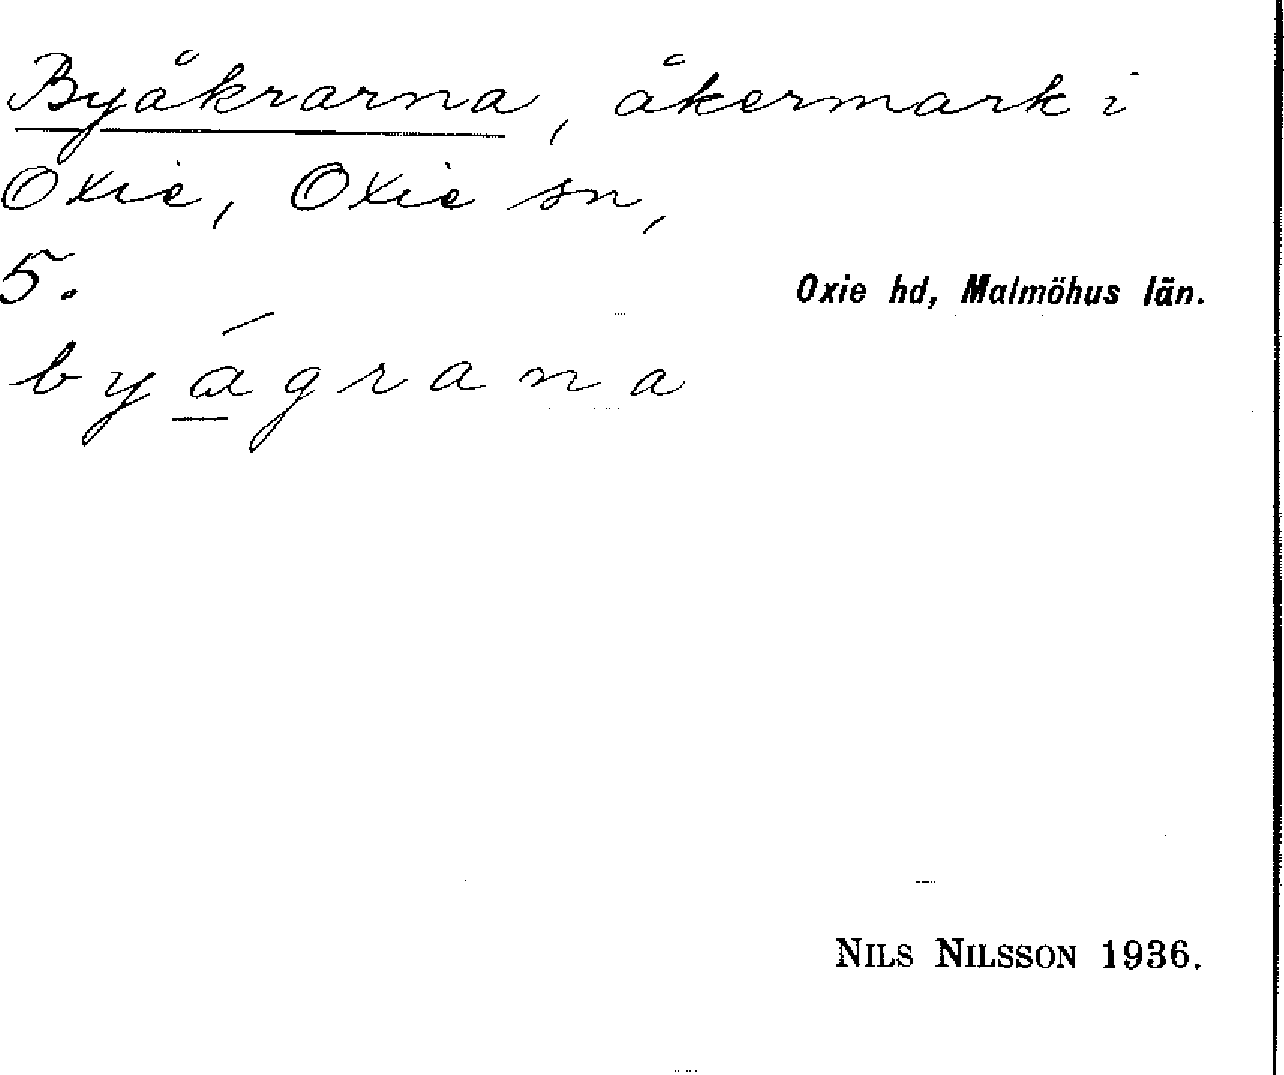 Byåkrarna, åkermark i
Oxie, Oxie sn,
5.
Oxie hd, Malmöhus län.
by á̱grana
NILS NILSSON 1936.